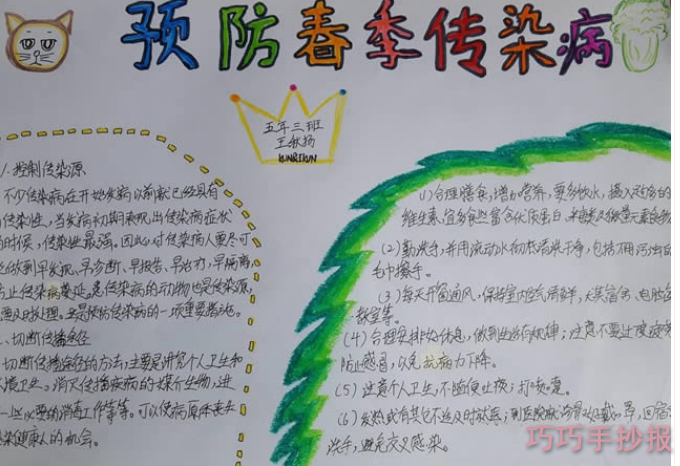 预防春季传染病
五年三班
1. 控制传染源
不少传染病在开始发病以前就已经具有
传染性,当发病初期表现出传染病症状
的时候,传染性最强。因此,对传染病人要尽可
做到早发现、早诊断、早报告、早治疗、早隔离,
止传染病蔓延。患传染病的动物也是传染源,
要及时处理。这是预防传染病的一项重要措施。
二、切断传播途径
切断传播途径的方法,主要是讲究个人卫生和
环境卫生。消灭传播疾病的媒介生物,进
一些必要的消毒工作等等。可以使病原体丧失
感染健康人的机会。
(1)合理膳食,增加营养,要多饮水,摄入适合的
维生素,宜多食些富含优质蛋白、
(2)勤洗手,并用流动水彻底清洗干净,包括不用污浊的
毛巾擦手。
(3)每天开窗通风,保持室内空气清新,尤其宿舍、电脑
教室等。
(4)合理安排好休息,做到生活有规律;注意不要过度疲
防止感冒,以免抗病力下降。
(5)注意个人卫生,不随便吐痰;打喷嚏。
(6)发热或有其它不适及时就医;到医院就诊最好戴口罩,回宿
洗手,避免交叉感染。
巧巧手抄报